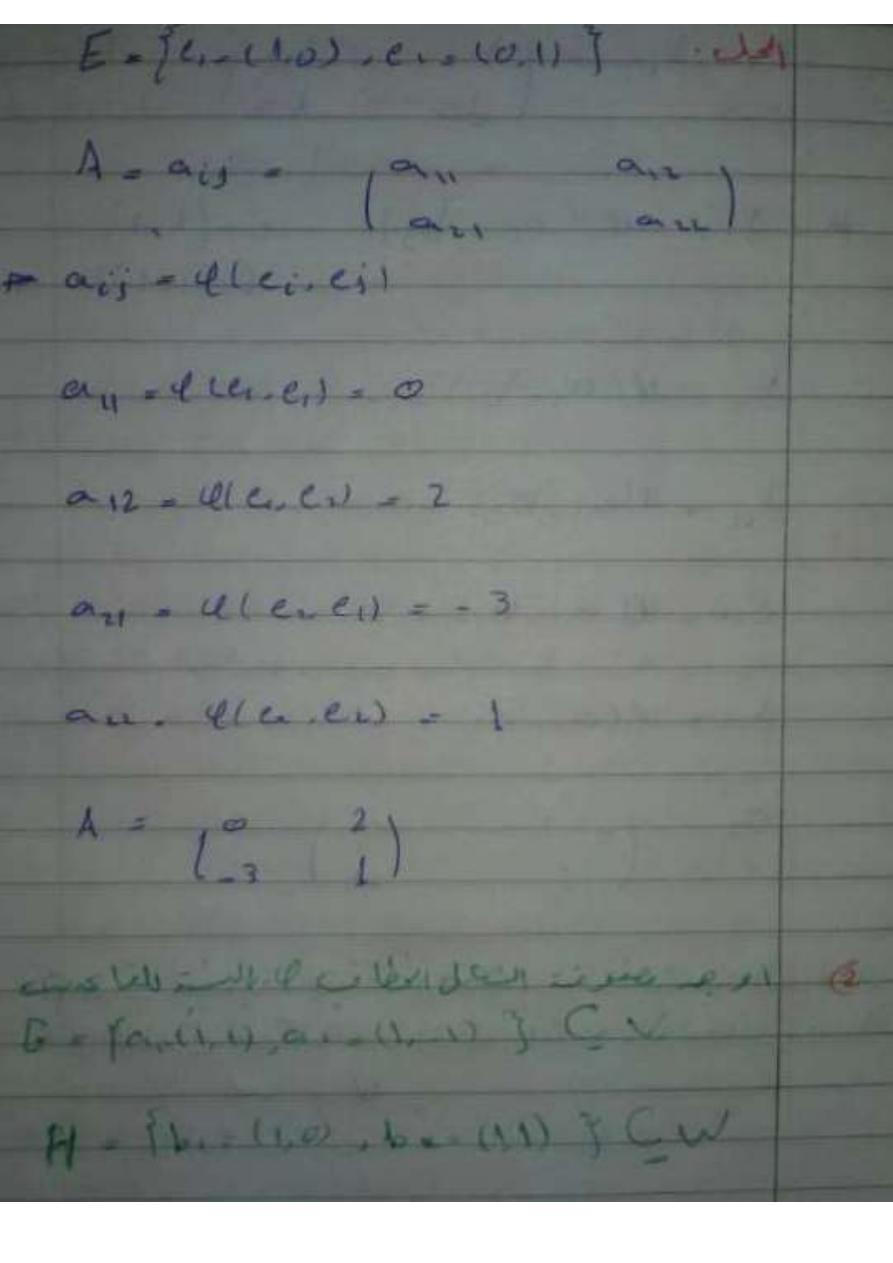 الحل: E = {e₁ = (1,0), e₂ = (0,1)}
A = aᵢⱼ = ( a₁₁ a₁₂
a₂₁ a₂₂ )
aᵢⱼ = φ(eᵢ, eⱼ)
a₁₁ = φ(e₁, e₁) = 0
a₁₂ = φ(e₁, e₂) = 2
a₂₁ = φ(e₂, e₁) = -3
a₂₂ = φ(e₂, e₂) = 1
A = ( 0 2
-3 1 )
② اوجد مصفوفة الشكل الخطاني φ بالنسبة للقاعدتين
G = {a₁ = (1,1), a₂ = (1,-1)} ⊆ V
H = {b₁ = (1,0), b₂ = (1,1)} ⊆ W